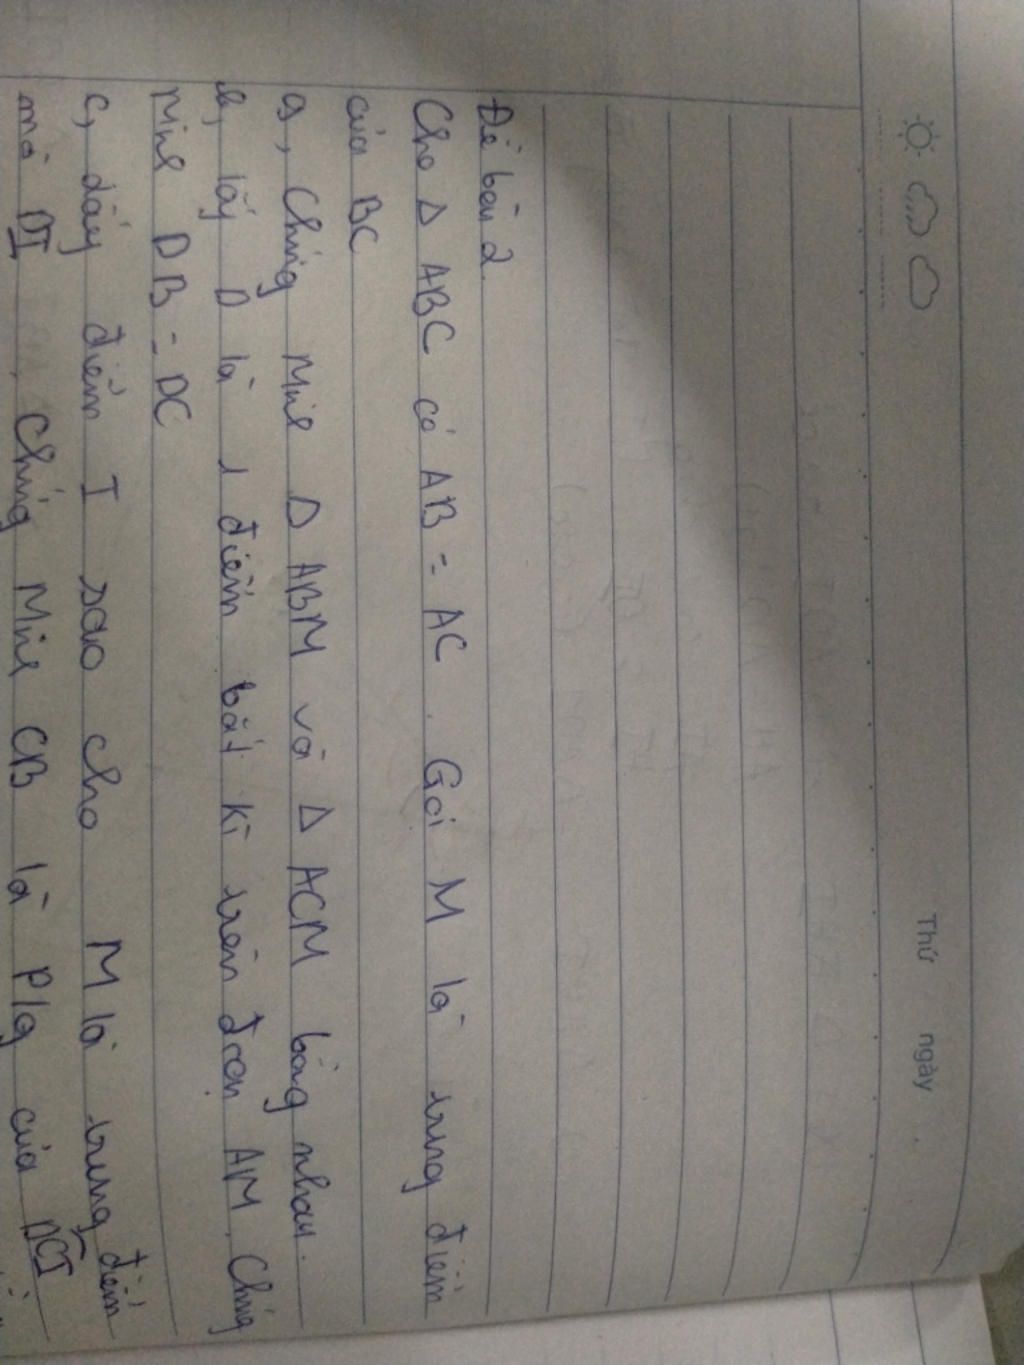 Thứ ngày
Đề bài 2
Cho Δ ABC có AB = AC. Gọi M là trung điểm
của BC
a, Chứng Minh Δ ABM và Δ ACM bằng nhau.
b, lấy D là 1 điểm bất kì trên đoạn AM. Chứng
Minh DB = DC
c, lấy điểm I sao cho M là trung điểm
mà DI, Chứng Minh CB là P/g của DCI